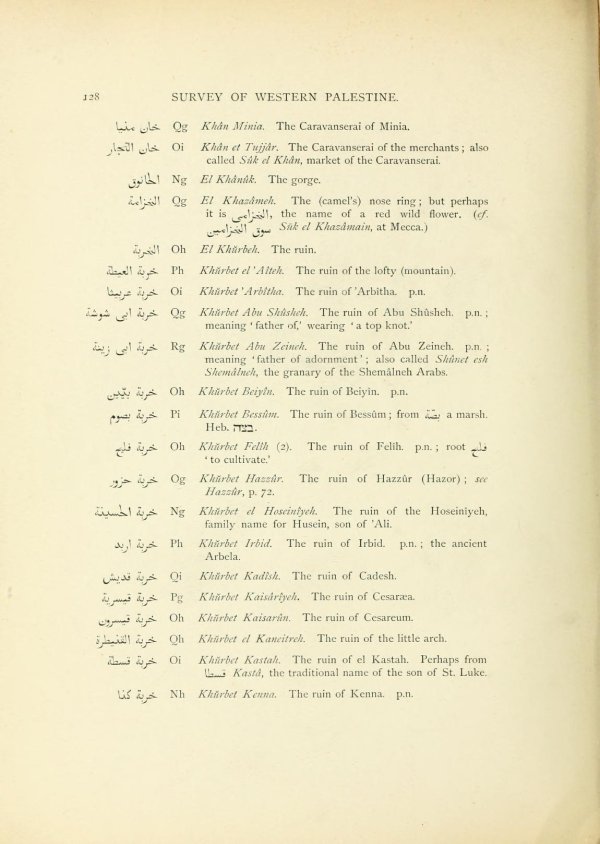 128 SURVEY OF WESTERN PALESTINE.
خان منيا Qg Khân Minia. The Caravanserai of Minia.
خان التجار Oi Khân et Tujjâr. The Caravanserai of the merchants; also
called Sûk el Khân, market of the Caravanserai.
الخانوق Ng El Khânûk. The gorge.
الخزامة Qg El Khazâmeh. The (camel's) nose ring; but perhaps
it is الخزامى, the name of a red wild flower. (cf.
سوق الخزامين Sûk el Khazâmain, at Mecca.)
الخربة Oh El Khŭrbeh. The ruin.
خربة العيطة Ph Khŭrbet el 'Aîteh. The ruin of the lofty (mountain).
خربة عربيثا Oi Khŭrbet 'Arbîtha. The ruin of 'Arbîtha. p.n.
خربة ابى شوشة Qg Khŭrbet Abu Shûsheh. The ruin of Abu Shûsheh. p.n.;
meaning 'father of,' wearing 'a top knot.'
خربة ابى زينة Rg Khŭrbet Abu Zeineh. The ruin of Abu Zeineh. p.n.;
meaning 'father of adornment'; also called Shûnet esh
Shemâlneh, the granary of the Shemâlneh Arabs.
خربة بيّين Oh Khŭrbet Beiyîn. The ruin of Beiyîn. p.n.
خربة بصوم Pi Khŭrbet Bessûm. The ruin of Bessûm; from بصّة a marsh.
Heb. בצה.
خربة فليح Oh Khŭrbet Felîh (2). The ruin of Felîh. p.n.; root فليح
'to cultivate.'
خربة حزور Og Khŭrbet Hazzûr. The ruin of Hazzûr (Hazor); see
Hazzûr, p. 72.
خربة الحسينة Ng Khŭrbet el Hoseinîyeh. The ruin of the Hoseiniyeh,
family name for Husein, son of 'Ali.
خربة اربد Ph Khŭrbet Irbid. The ruin of Irbid. p.n.; the ancient
Arbela.
خربة قديش Qi Khŭrbet Kadîsh. The ruin of Cadesh.
خربة قيسرية Pg Khŭrbet Kaisârîyeh. The ruin of Cesaræa.
خربة قيسرون Oh Khŭrbet Kaisarûn. The ruin of Cesareum.
خربة القنيطرة Qh Khŭrbet el Kaneitreh. The ruin of the little arch.
خربة قسطة Oi Khŭrbet Kastah. The ruin of el Kastah. Perhaps from
قسطا Kastâ, the traditional name of the son of St. Luke.
خربة كنا Nh Khŭrbet Kenna. The ruin of Kenna. p.n.